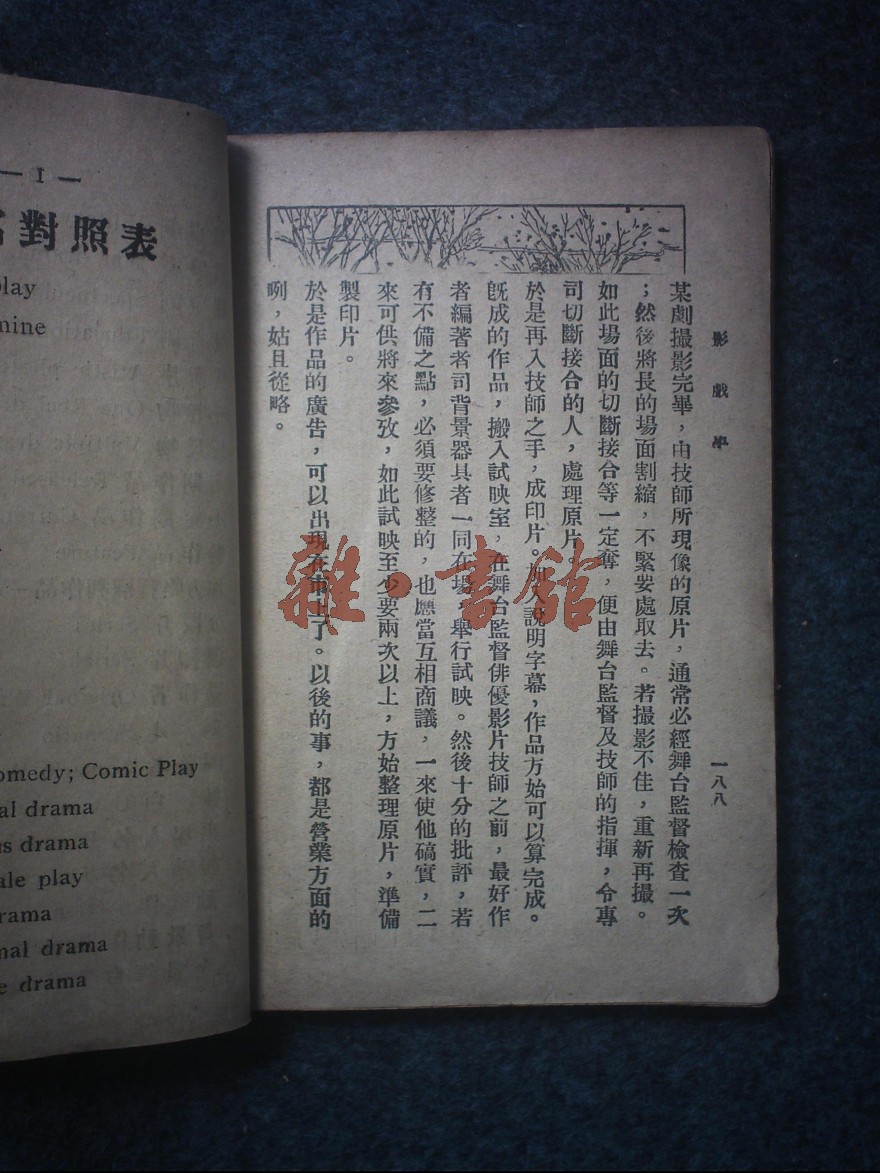 影戲學
一八八
某劇撮影完畢，由技師所現像的原片，通常必經舞台監督檢查一次
；然後將長的場面割縮，不緊要處取去。若撮影不佳，重新再撮。
如此場面的切斷接合等一定奪，便由舞台監督及技師的指揮，令專
司切斷接合的人，處理原片。
於是再入技師之手，成印片。加入說明字幕，作品方始可以算完成。
旣成的作品，搬入試映室，在舞台監督俳優影片技師之前，最好作
者編著者司背景器具者一同在場，舉行試映。然後十分的批評，若
有不備之點，必須要修整的，也應當互相商議，一來使他碻實，二
來可供將來參攷，如此試映至少要兩次以上，方始整理原片，準備
製印片。
於是作品的廣告，可以出現在市上了。以後的事，都是營業方面的
咧，姑且從略。
雜·書館
— I —
對照表
play
omedy; Comic Play
drama
drama
play
drama
drama